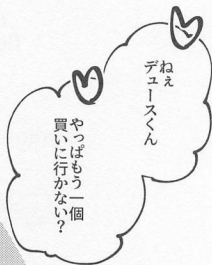 ねぇ
デュースくん
やっぱもう一個
買いに行かない?